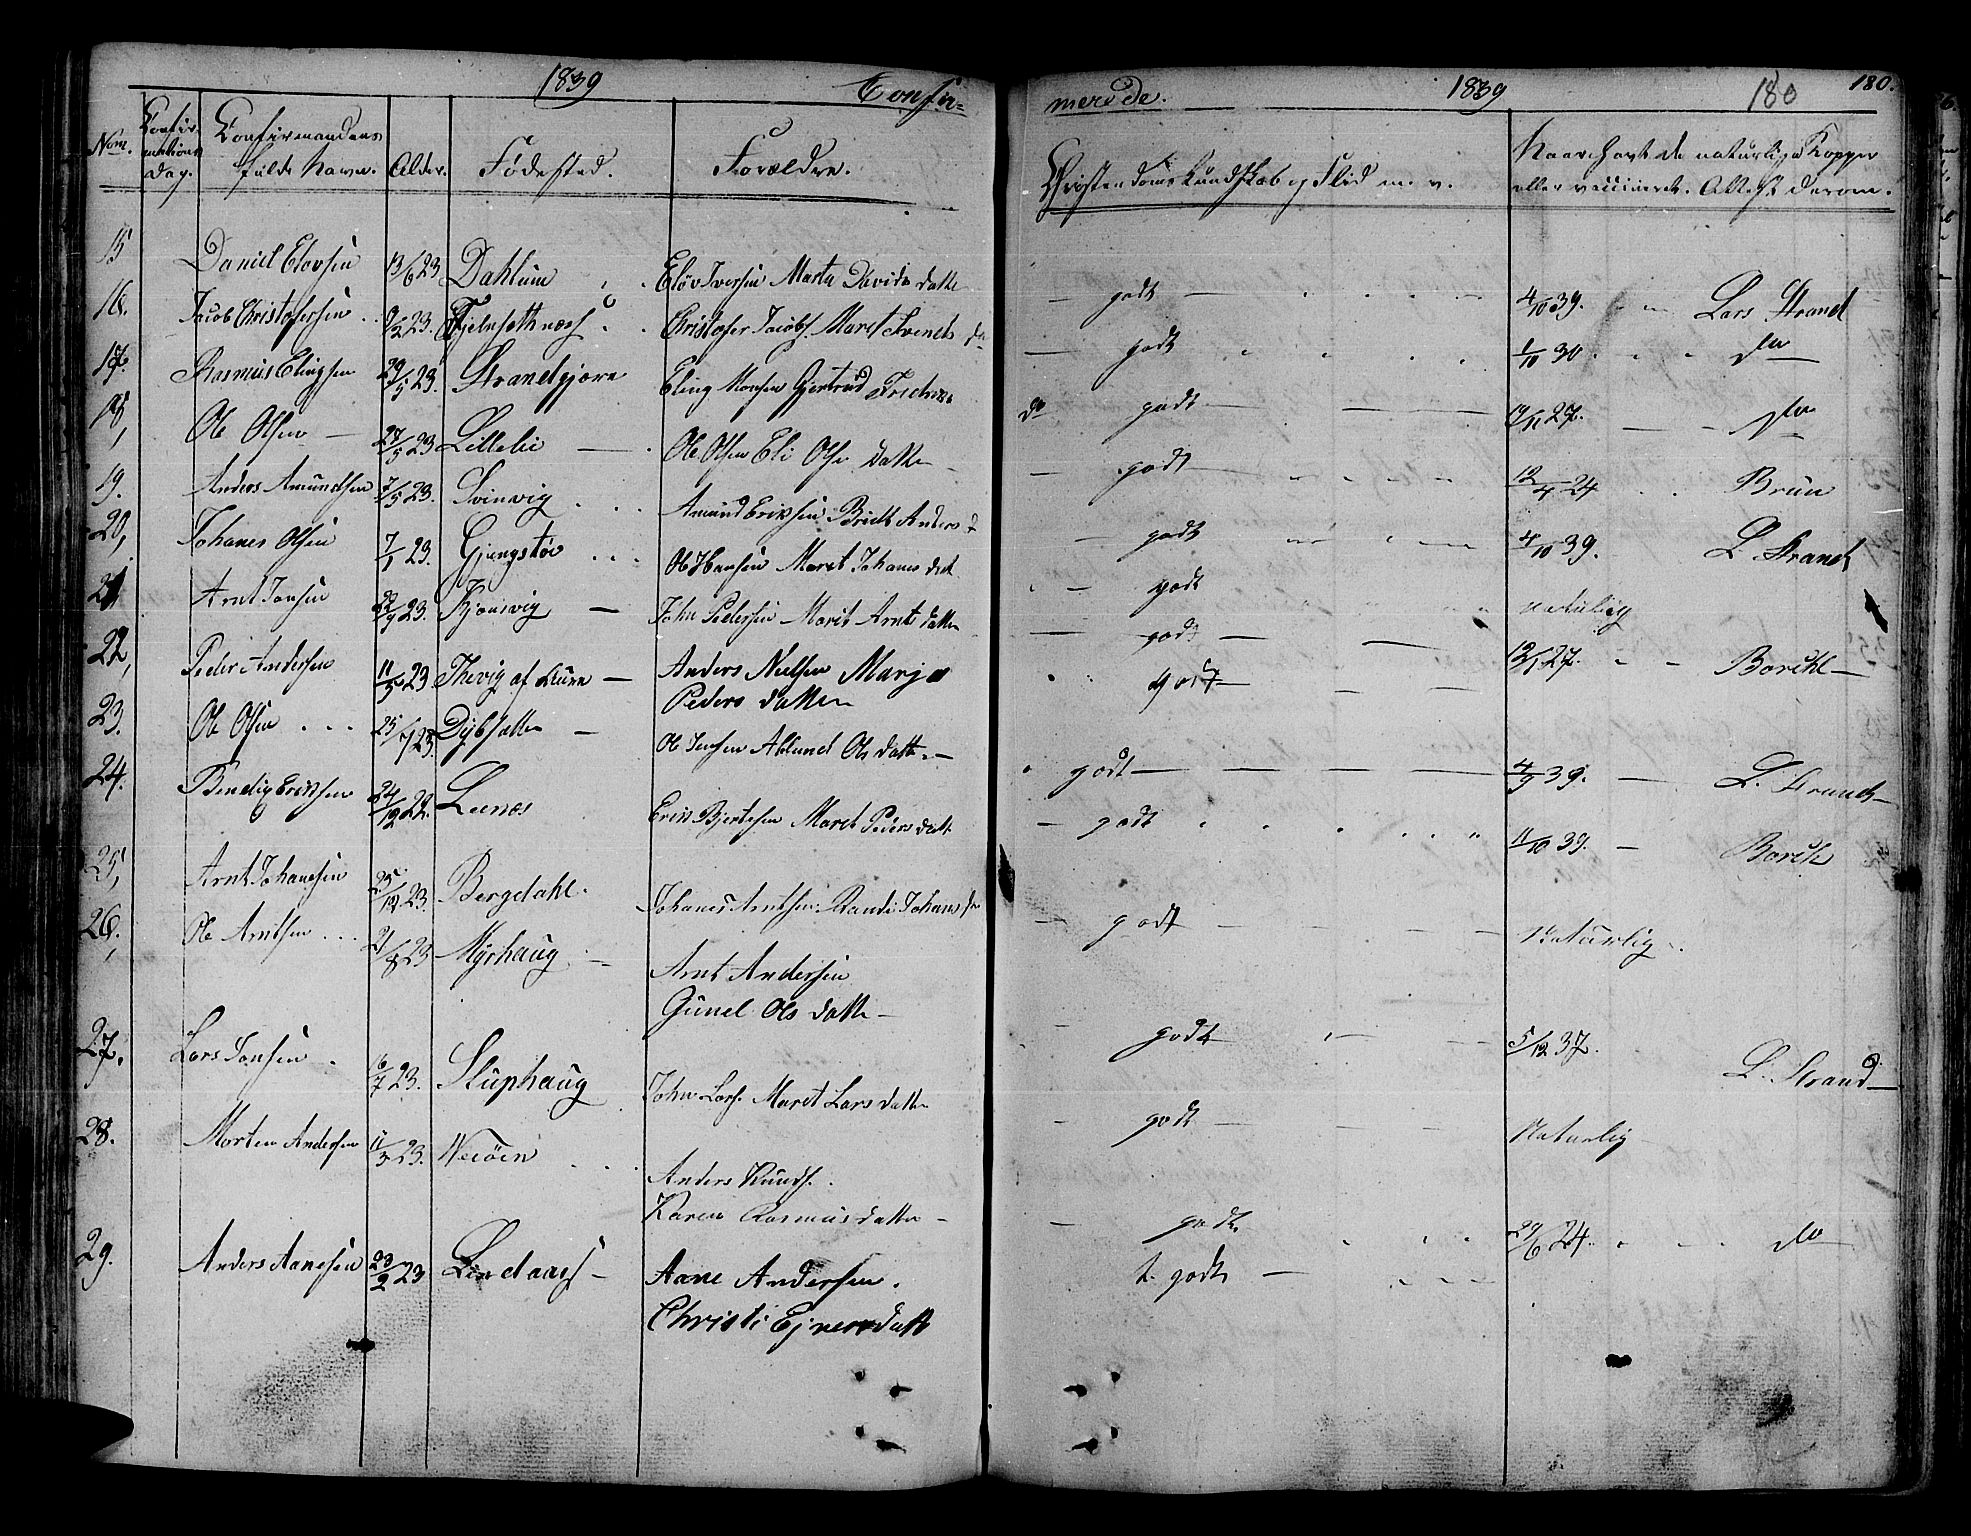 1839 Confir=
merede. 1839 180 180.
Nom. Confirmations Dag. Confirmandens fulde Navn. Alder. Födested. Forældre. Christendoms Kundskab og Flid m. v. Naar havt de naturlige Kopper eller vaccineret. Attest derom.
15 Daniel Elovsen 13/6 23 Dahlum Elöv Iversen Marta Davids datter godt 4/10 39. Lars Strand
16. Jacob Christophersen 9/3 23. Christofer Jacobs. Maret Svends d godt 1/10 30 do
17. Rasmus Elingsen 29/5 23. Strandgjore Eling Monsen Gjertrud godt 27. do
18, Ole Olsen 27/5 23 Lillelie Ole Olsen Eli Ols datter godt
19. Anders Amundsen 7/5 23. Svinvig Amund Eriksen Bridt Anders d 12/4 24 Brun
20, Johanes Olsen 7/1 23. Gjengstöe Ole Hansen Maret Johanes dat godt 4/10 39. L. Strand
21 Arnt Jonsen 22/9 23. Kjönsvig John Pedersen Marit Arnt datter godt naturlig
22, Peder Andersen 11/5 23 Thevig af Anders Nielsen Marja godt 12/1 27. Boeckl
Peders datter godt
23. Ole Olsen 25/7 23. Dybsætter Ole Jensen Ablund Ols datter godt 4/9 39. L. Strand
24. Bendig Eriksen 24/12 22. Leenæs Erik Bjertesen Maret Peders datt godt 11/10 39.
25, Arnt Johansen 25/12 23. Bergdahl. Johanes Arntsen Randi Johans d godt Naturlig
26, Ole Arntsen 21/8 23 Myrhaug Arnt Andersen
Gunel Ols datter
27. Lars Jonsen 16/7 23. Stuphaug John Lars. Maret Lars datter godt 5/12 37. L. Strand
28. Morten Andersen 11/3 23. Veiöen godt Naturlig
Anders Knuds.
Karen Rasmus datter godt 29/6 24. do
29. Anders Aanesen 23/2 23 Lindaas Aane Andersen. t. godt
Christi Ejners datt